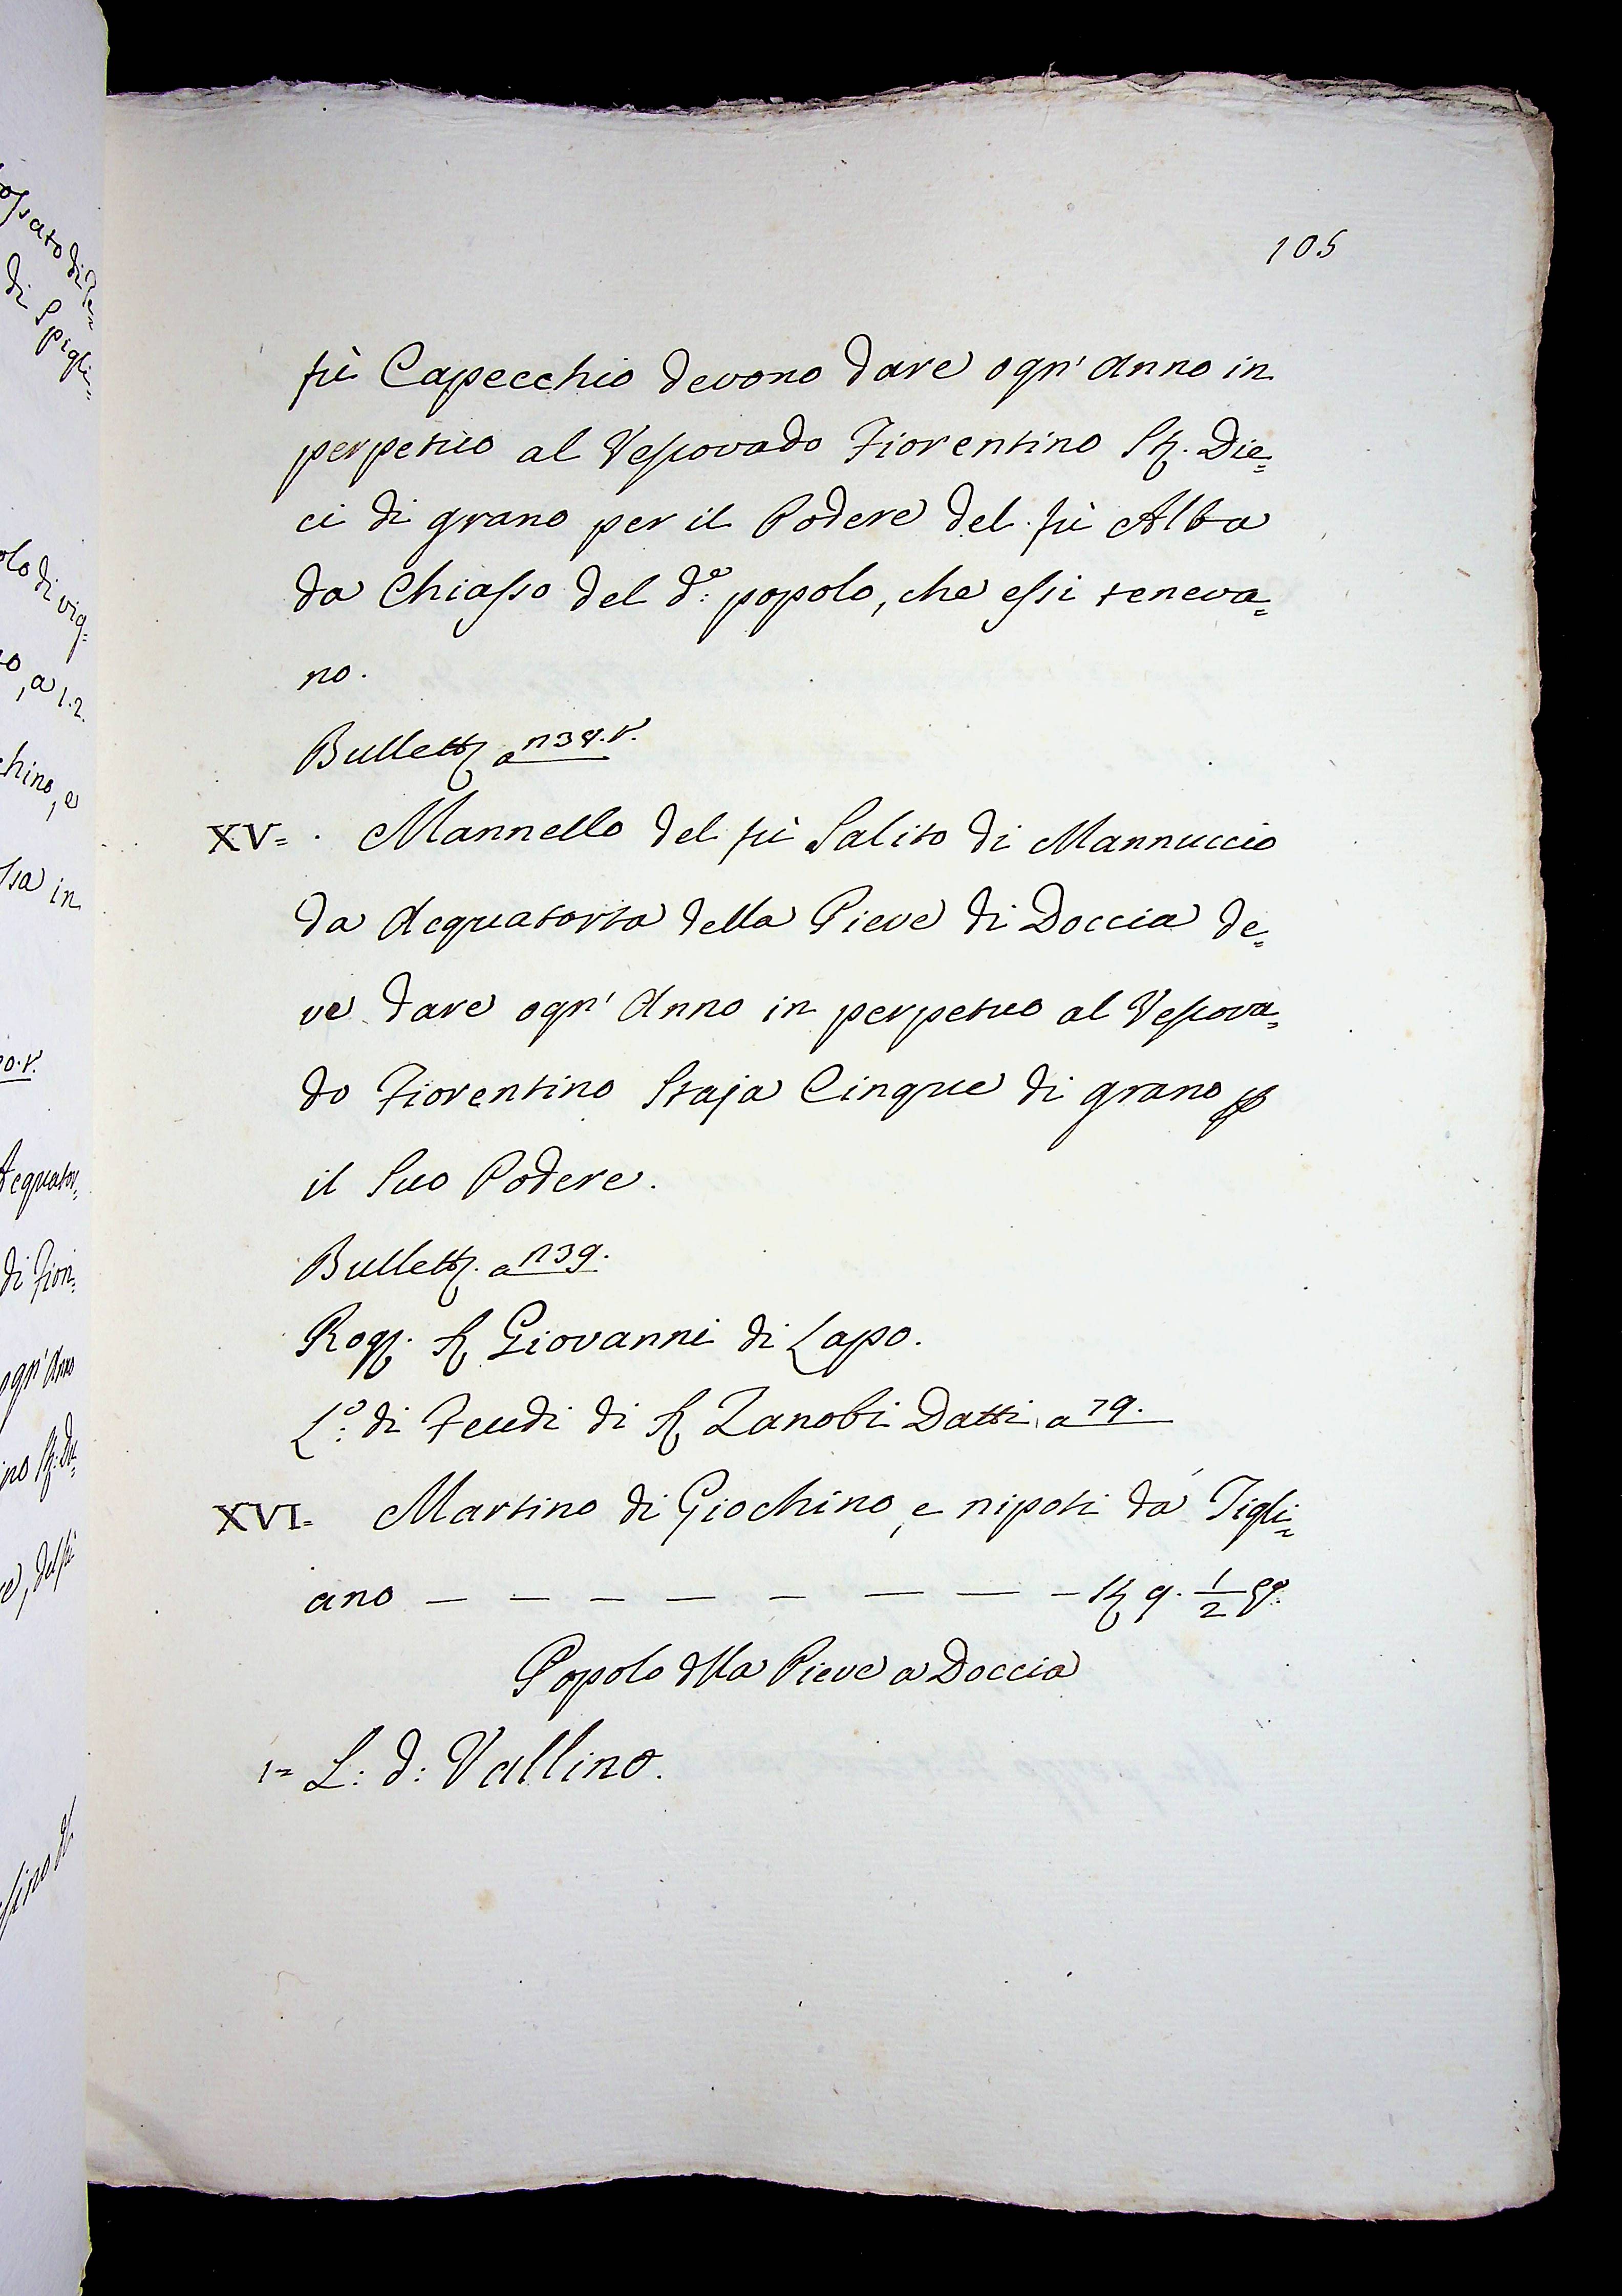 105
fù Capecchio devono dare ogn' Anno in
perpetuo al Vescovado Fiorentino St. Die=
ci di grano per il Podere del fù Alba
da Chiasso del d.º popolo, che essi teneva=
no.
Bullett. a 138.v.
XV= Mannello del fù Salito di Mannuccio
da Acquatorta della Pieve di Doccia de=
ve dare ogn' Anno in perpetuo al Vescova=
do Fiorentino Staja Cinque di grano p
il Suo Podere.
Bullett. a 139.
Rog. S. Giovanni di Lapo.
L.º di Feudi di S. Zanobi Datti a 79.
XVI= Martino di Giochino, e nipoti da Tigli=
ano — — — — — — — — St. 9. 1/2
Popolo dlla Pieve a Doccia
1= L: d: Vallino.